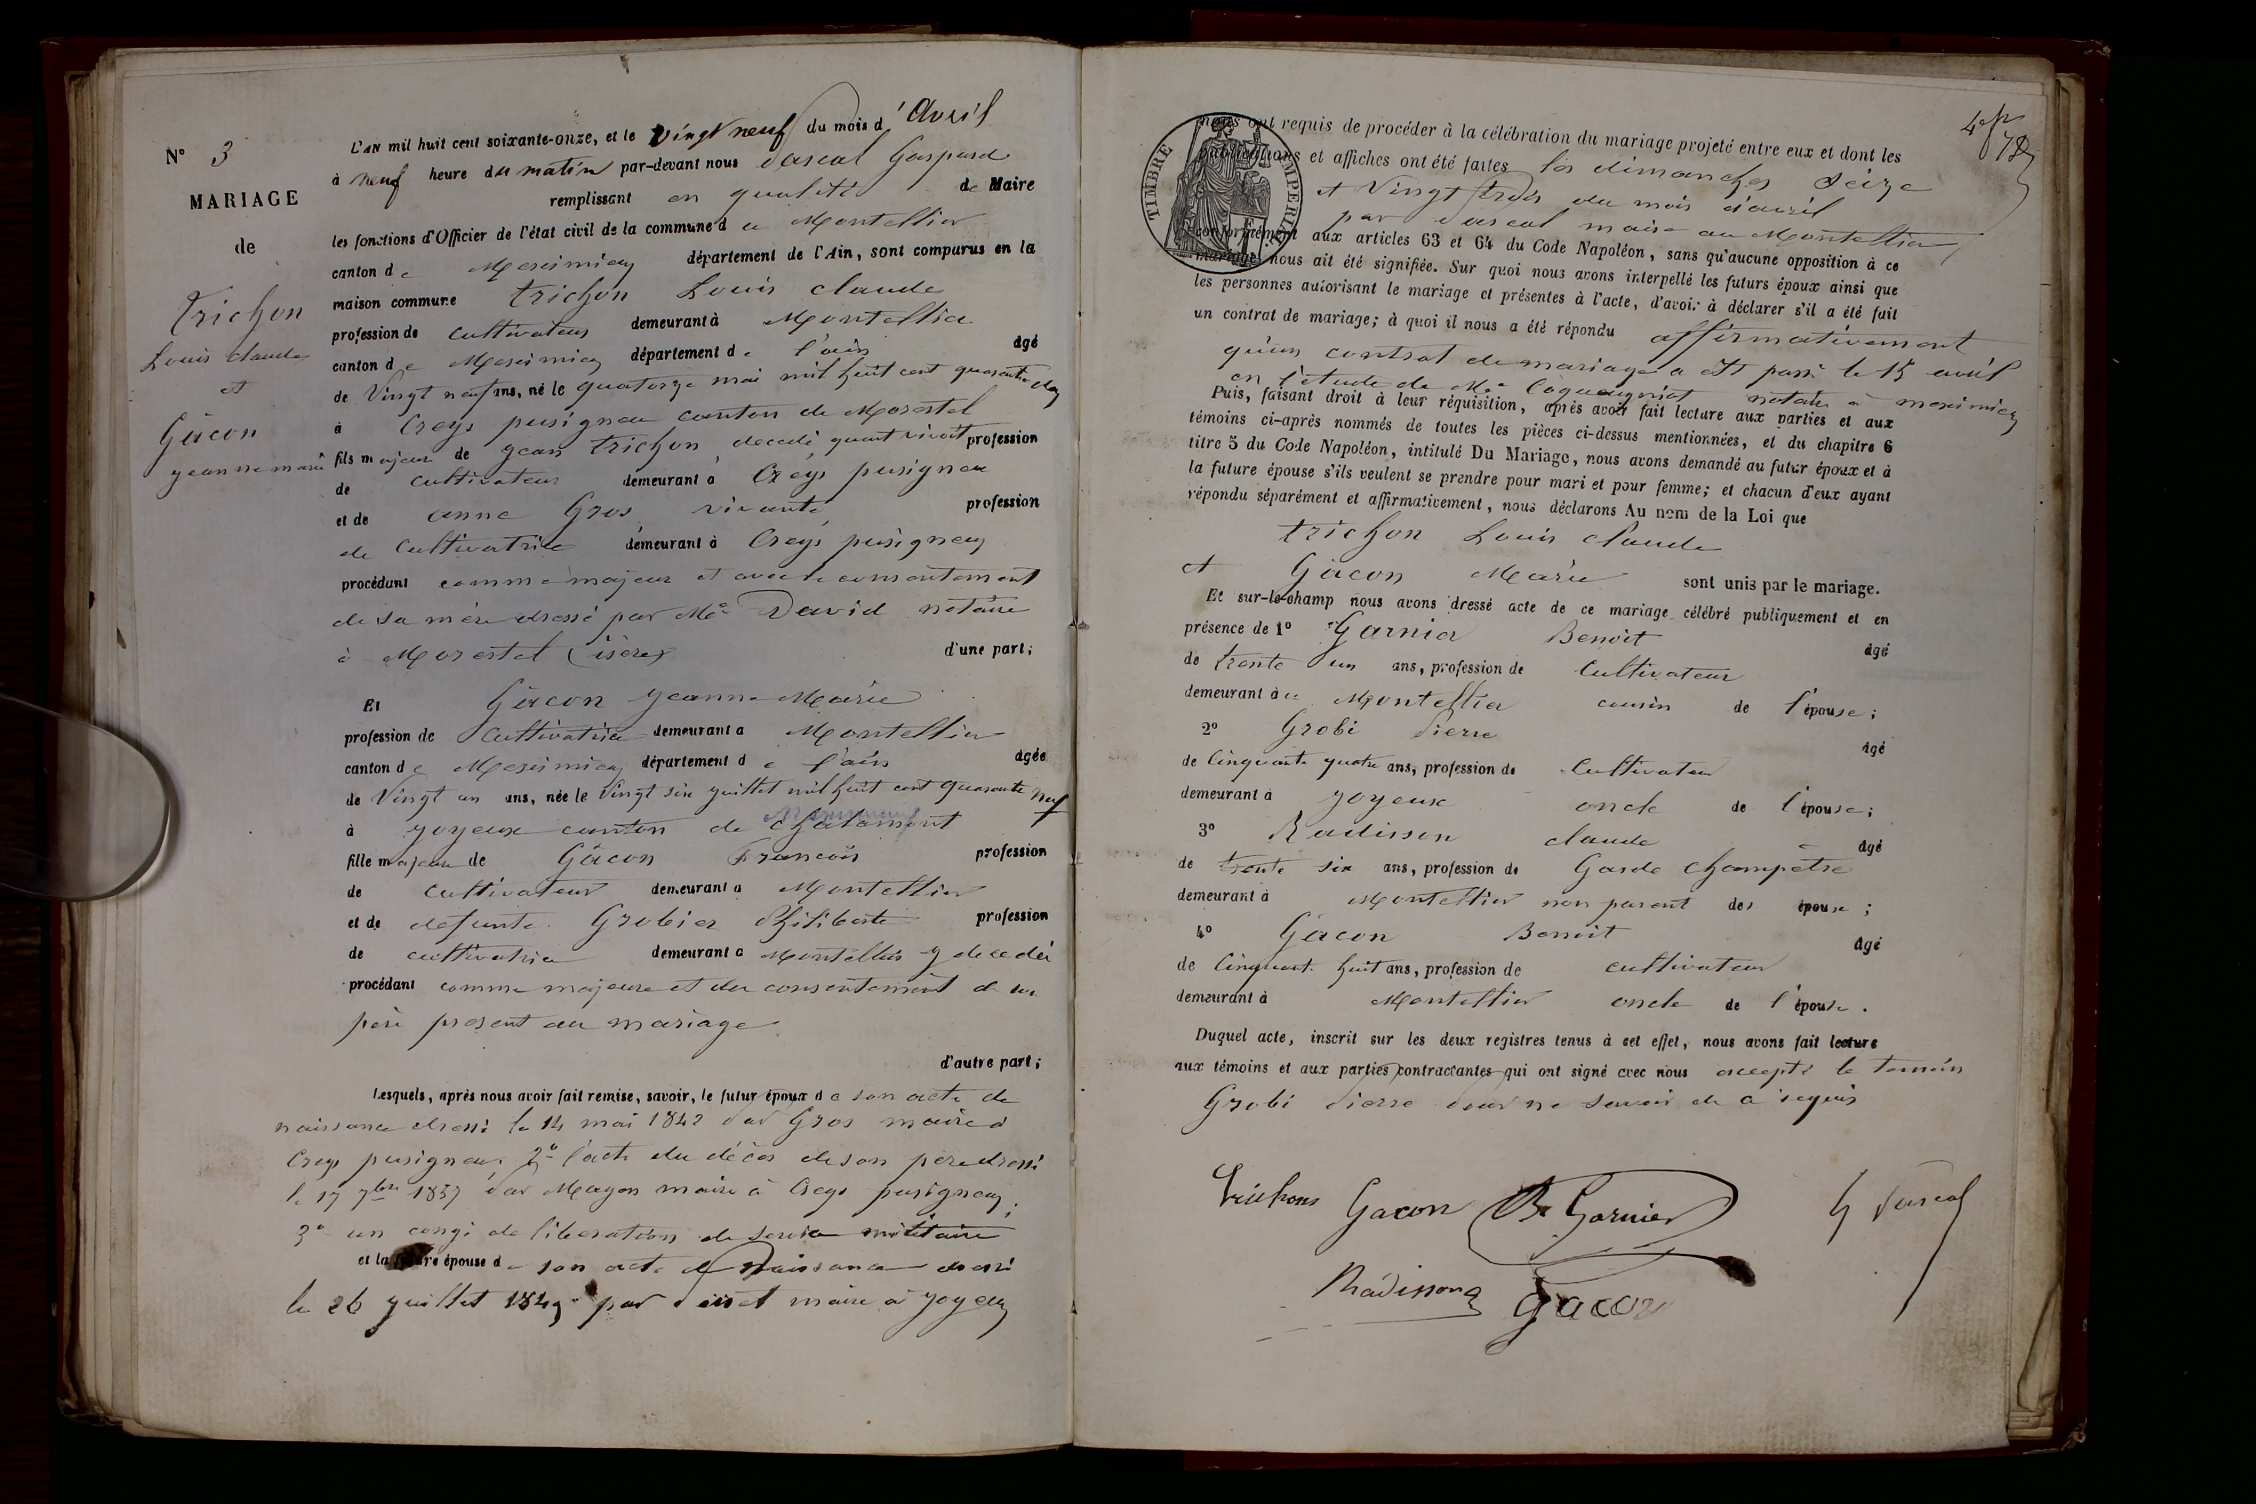 N° 3
MARIAGE
de
Trichon
Louis Claude
et
Gâcon
jeanne marie
L'AN mil huit cent soixante-onze, et le vingt neuf du mois d'Avril
à neuf heure du matin par-devant nous Pascal Gaspard
remplissant en qualité de Maire
les fonctions d'Officier de l'état civil de la commune d u Montellier
canton de Meximieu département de l'Ain, sont comparus en la
maison commune trichon Louis claude
profession de cultivateur demeurant à Montellier
canton de Meximieu département de l'ain âgé
de Vingt neuf ans, né le quatorze mai mil huit cent quarante deux
à Creys pusigneu canton de Morestel
fils majeur de jean trichon, decedé, quant vivait profession
de cultivateur demeurant à Creys pusigneu
et de anne Gros, vivante, profession
de Cultivatrice demeurant à Creys pusigneu
procédant comme majeur et avec le consentement
de sa mère dressé par Me David notaire
à Morestel (isère) d'une part;
Et Gâcon jeanne Marie
profession de Cultivatrice demeurant à Montellier
canton de Meximieu département de l'ain âgée
de Vingt un ans, née le Vingt six juillet mil huit cent quarante neuf
à joyeux canton de chalamont
fille majeure de Gâcon François profession
de cultivateur demeurant à Montellier
et de defunte Grobier Philiberte profession
de cultivatrice demeurant à Montellier y decedée
procédant comme majeure et du consentement de son
père present au mariage
d'autre part;
Lesquels, après nous avoir fait remise, savoir, le futur époux de son acte de
naissance dressé le 14 mai 1842 par Gros maire à
Creys pusigneu; 2° l'acte du décès de son père dressé
le 17 7bre 1857 par Mayon maire à Creys pusigneu;
3° un congé de liberation de service militaire
et la future épouse de son acte de Naissance dressé
le 26 juillet 1849 par maire à joyeux
4e 
TIMBRE IMPERIAL
nous ont requis de procéder à la célébration du mariage projeté entre eux et dont les
publications et affiches ont été faites les dimanches seize
et Vingt trois du mois d'avril
par Pascal maire au Montellier
conformément aux articles 63 et 64 du Code Napoléon, sans qu'aucune opposition à ce
mariage nous ait été signifiée. Sur quoi nous avons interpellé les futurs époux ainsi que
les personnes autorisant le mariage et présentes à l'acte, d'avoir à déclarer s'il a été fait
un contrat de mariage; à quoi il nous a été répondu affirmativement
qu'un contrat de mariage a été passé le 15 avril
en l'étude de Me notaire à meximieu
Puis, faisant droit à leur réquisition, après avoir fait lecture aux parties et aux
témoins ci-après nommés de toutes les pièces ci-dessus mentionnées, et du chapitre 6
titre 5 du Code Napoléon, intitulé Du Mariage, nous avons demandé au futur époux et à
la future épouse s'ils veulent se prendre pour mari et pour femme; et chacun d'eux ayant
répondu séparément et affirmativement, nous déclarons Au nom de la Loi que
trichon Louis claude
et Gâcon Marie sont unis par le mariage.
Et sur-le-champ nous avons dressé acte de ce mariage célébré publiquement et en
présence de 1° Garnier Benoit âgé
de trente un ans, profession de Cultivateur
demeurant à u Montellier cousin de l'épouse;
2° Grobi Pierre âgé
de Cinquante quatre ans, profession de Cultivateur
demeurant à joyeux oncle de l'épouse;
3° Radisson claude âgé
de trente six ans, profession de Garde Champêtre
demeurant à Montellier non parent des épouse;
4° Gâcon Benoit âgé
de Cinquante huit ans, profession de cultivateur
demeurant à Montellier oncle de l'épouse.
Duquel acte, inscrit sur les deux registres tenus à cet effet, nous avons fait lecture
aux témoins et aux parties contractantes qui ont signé avec nous excepté le temoin
Grobi Pierre pour ne savoir de ce requis
Trichons Gacon Be Garnier G Pascal
Radisson Gacon